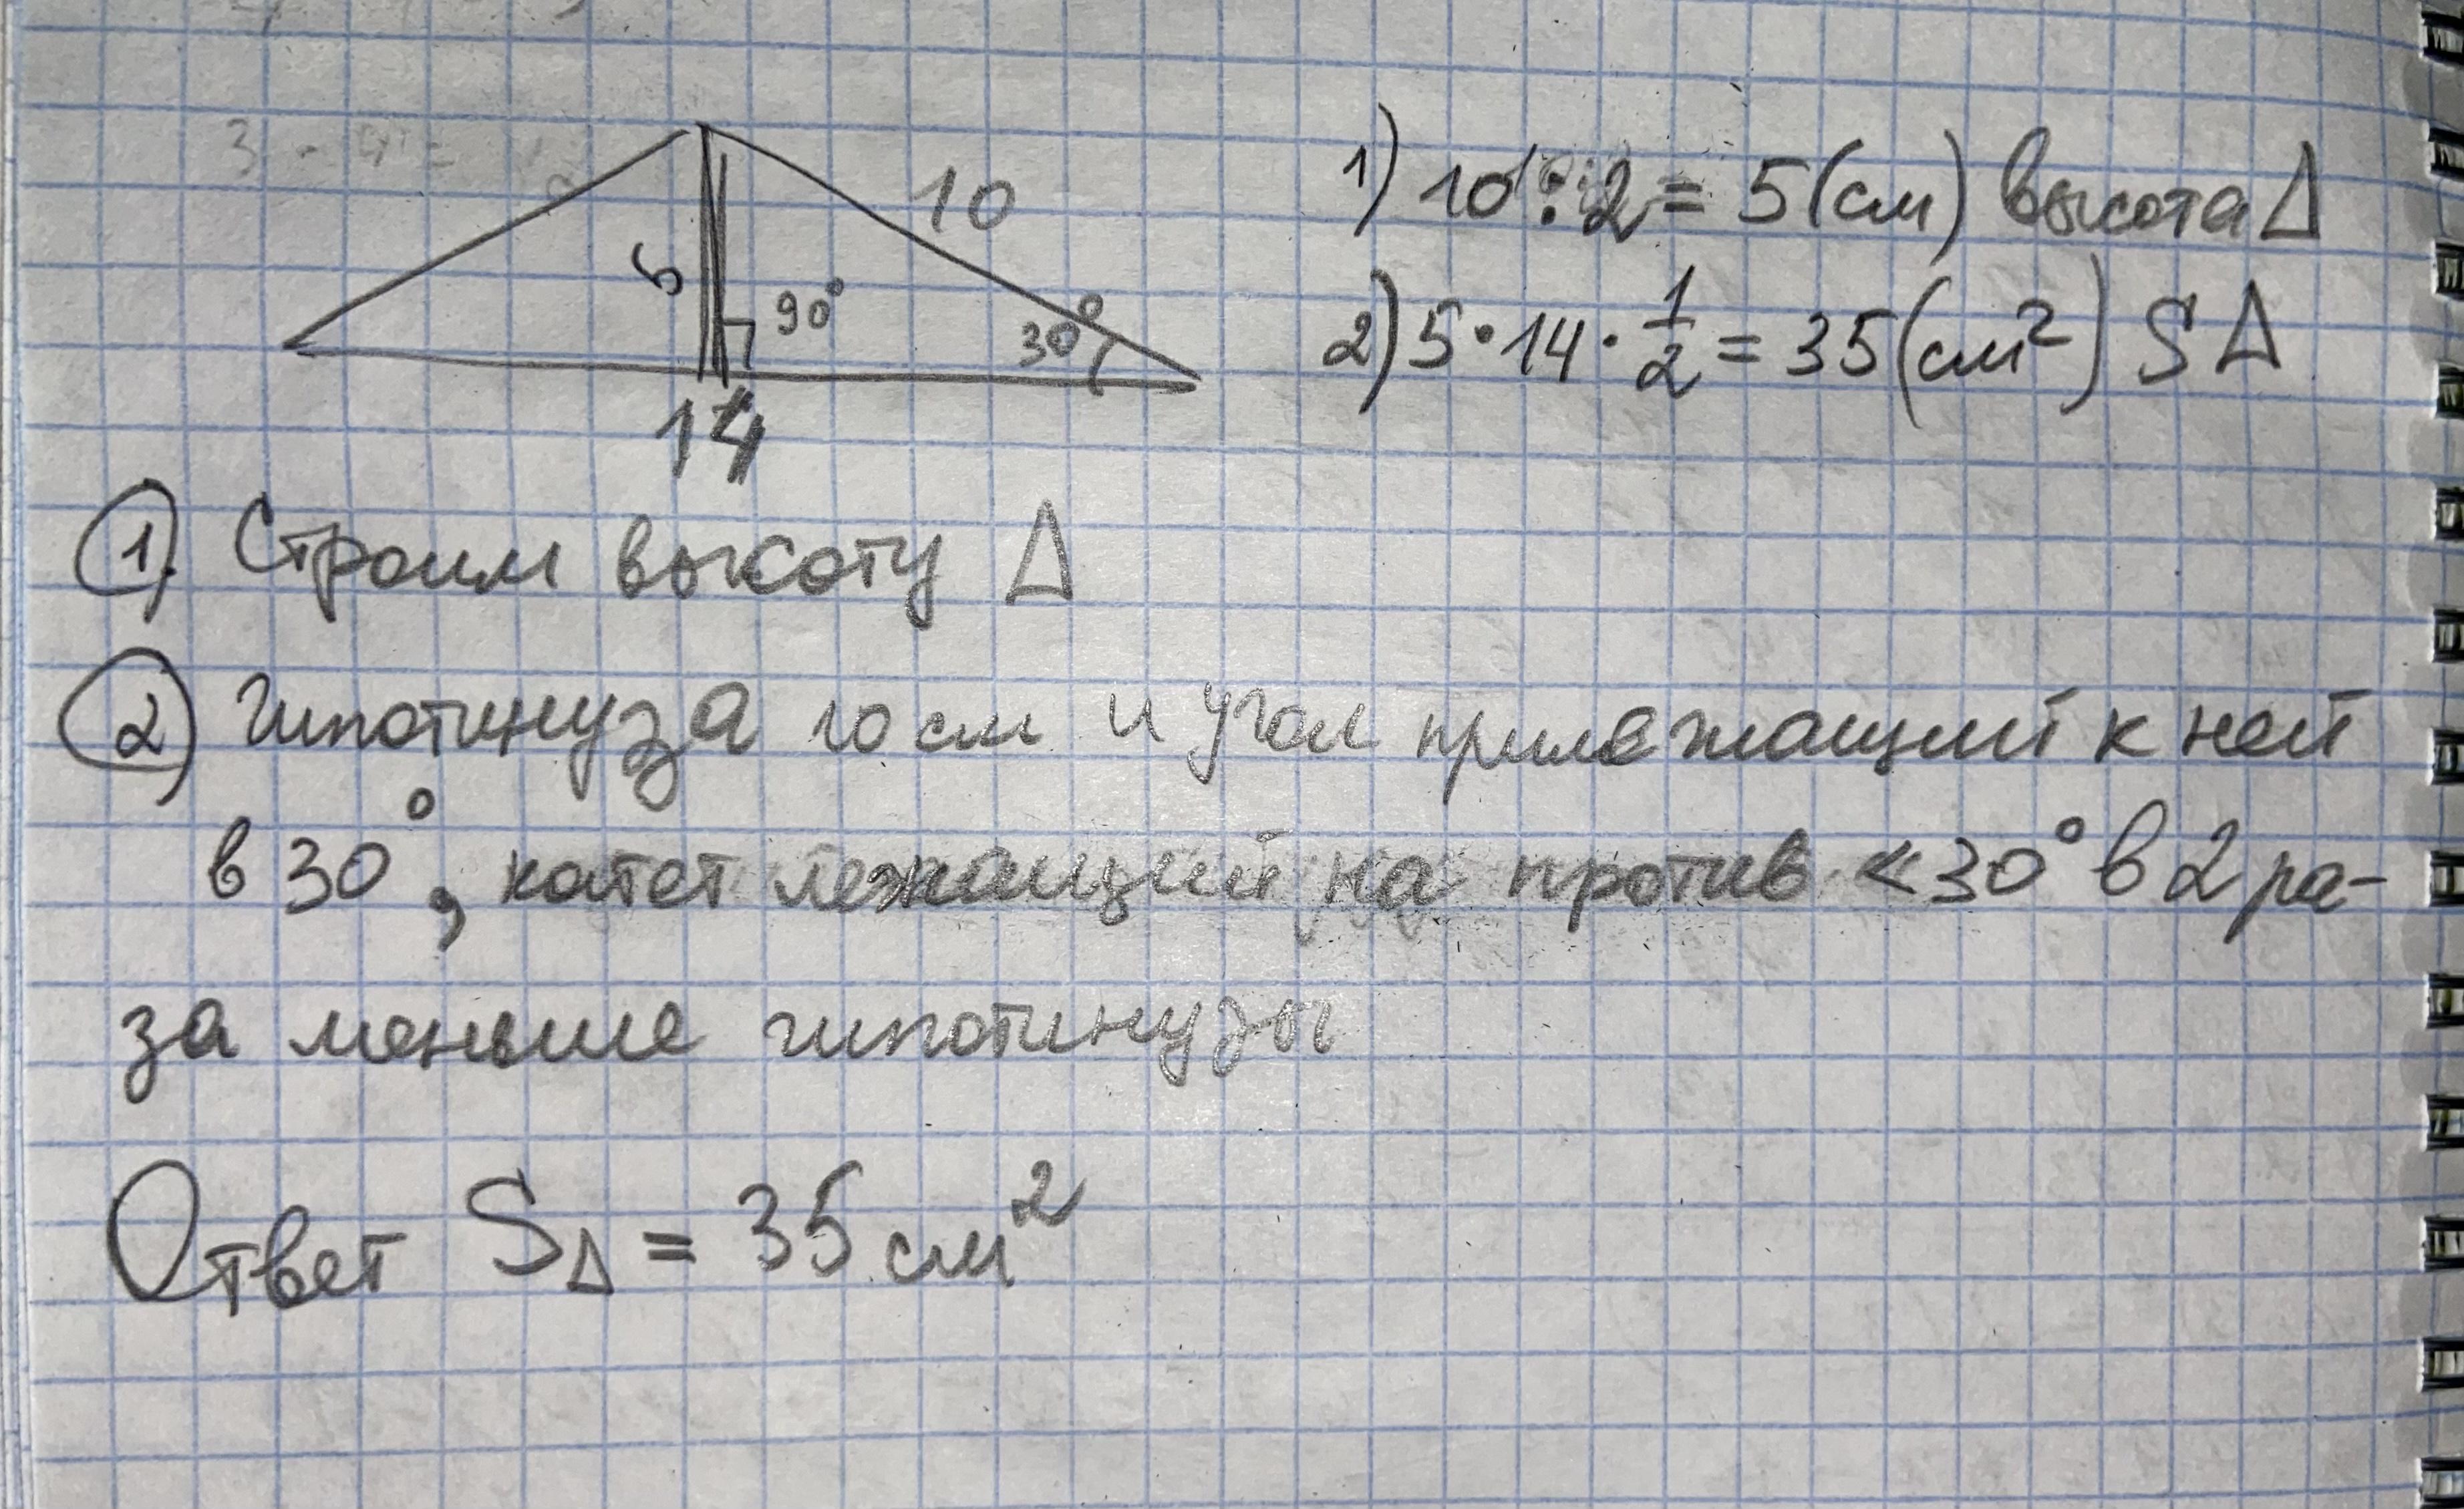 10
1) 10 : 2 = 5 (см) высота Δ
5
90°
30°
2) 5 · 14 · 1/2 = 35 (см²) S Δ
14
1) Строим высоту Δ
2) Гипотинуза 10 см и угол прилежащий к ней
в 30°, катет лежащий на против <30° в 2 ра-
за меньше гипотинузы
Ответ SΔ = 35 см²